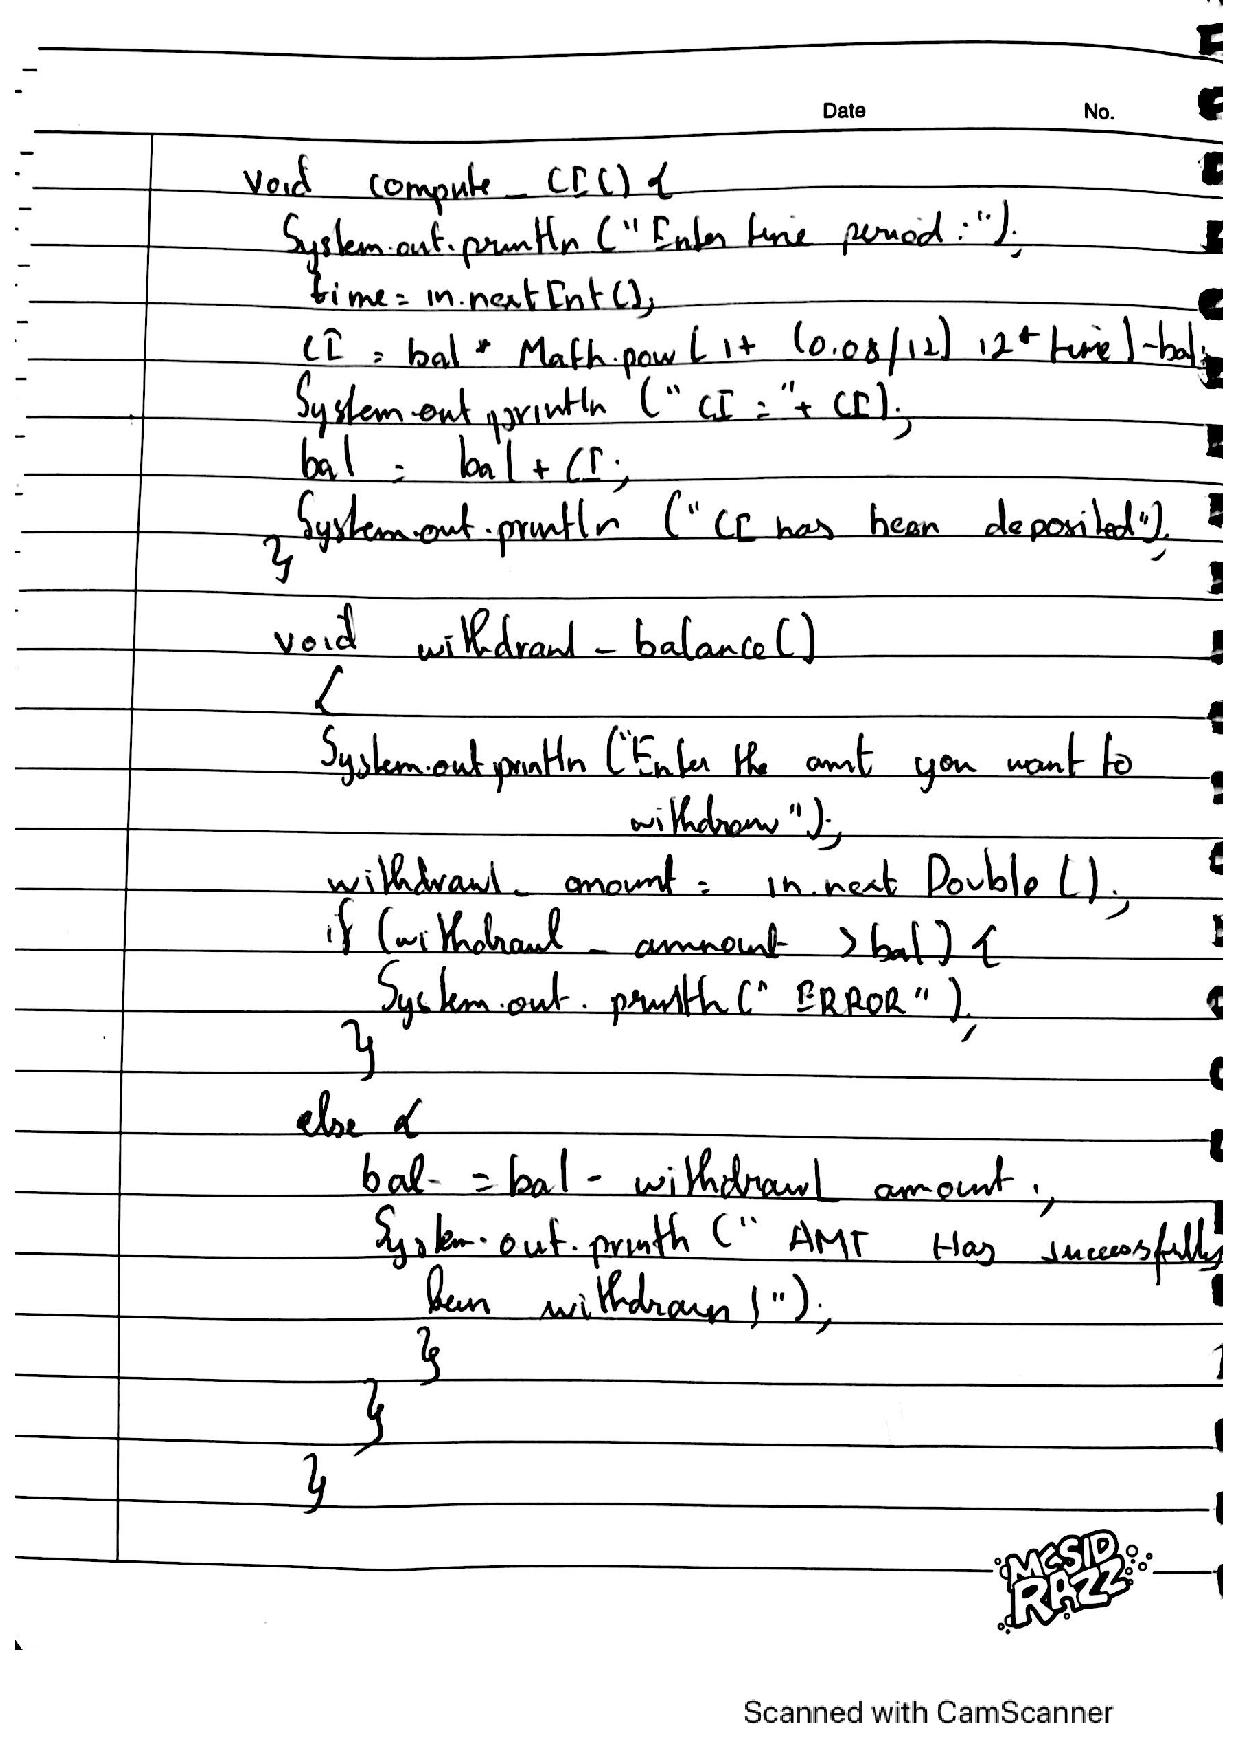 Date No.
void compute_CI() {
System.out.println ("Enter time period:");
time = in.nextInt();
CI = bal * Math.pow(1+ (0.08/12) 12* time)-bal;
System.out println ("CI = "+ CI);
bal = bal + CI;
System.out.println ("CI has been deposited");
}
void withdrawl_balance()
{
System.out println ("Enter the amt you want to
withdraw");
withdrawl_amount = in.next Double();
if (withdrawl_ammount >bal) {
System.out.println(" ERROR");
}
else {
bal = bal - withdrawl amount;
System.out.println (" AMT Has successfully
been withdrawn!");
}
}
}
MCSID
RAZZ
Scanned with CamScanner